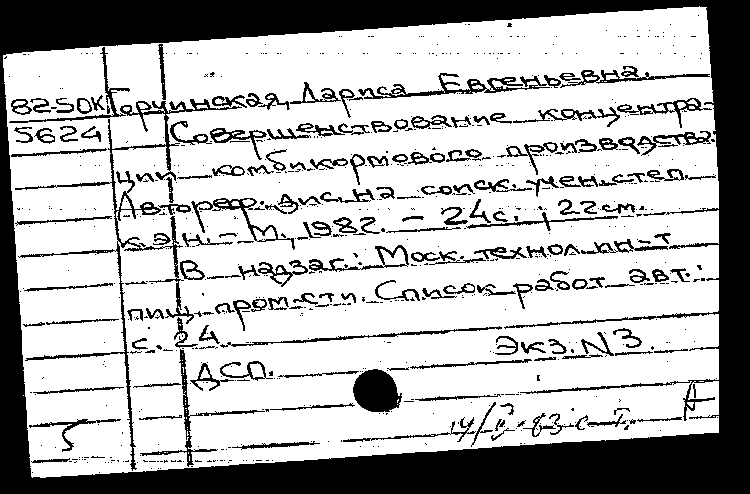 82-50К Горчинская, Лариса Евгеньевна.
5624 Совершенствование концентра-
ции комбикормового производства:
Автореф. дис. на соиск. учен. степ.
к.э.н. - М., 1982. - 24с. ; 22см.
В надзаг.: Моск. технол. ин-т
пищ. пром-сти. Список работ авт.:
с. 24.
ДСП. Экз. N3.
5
А